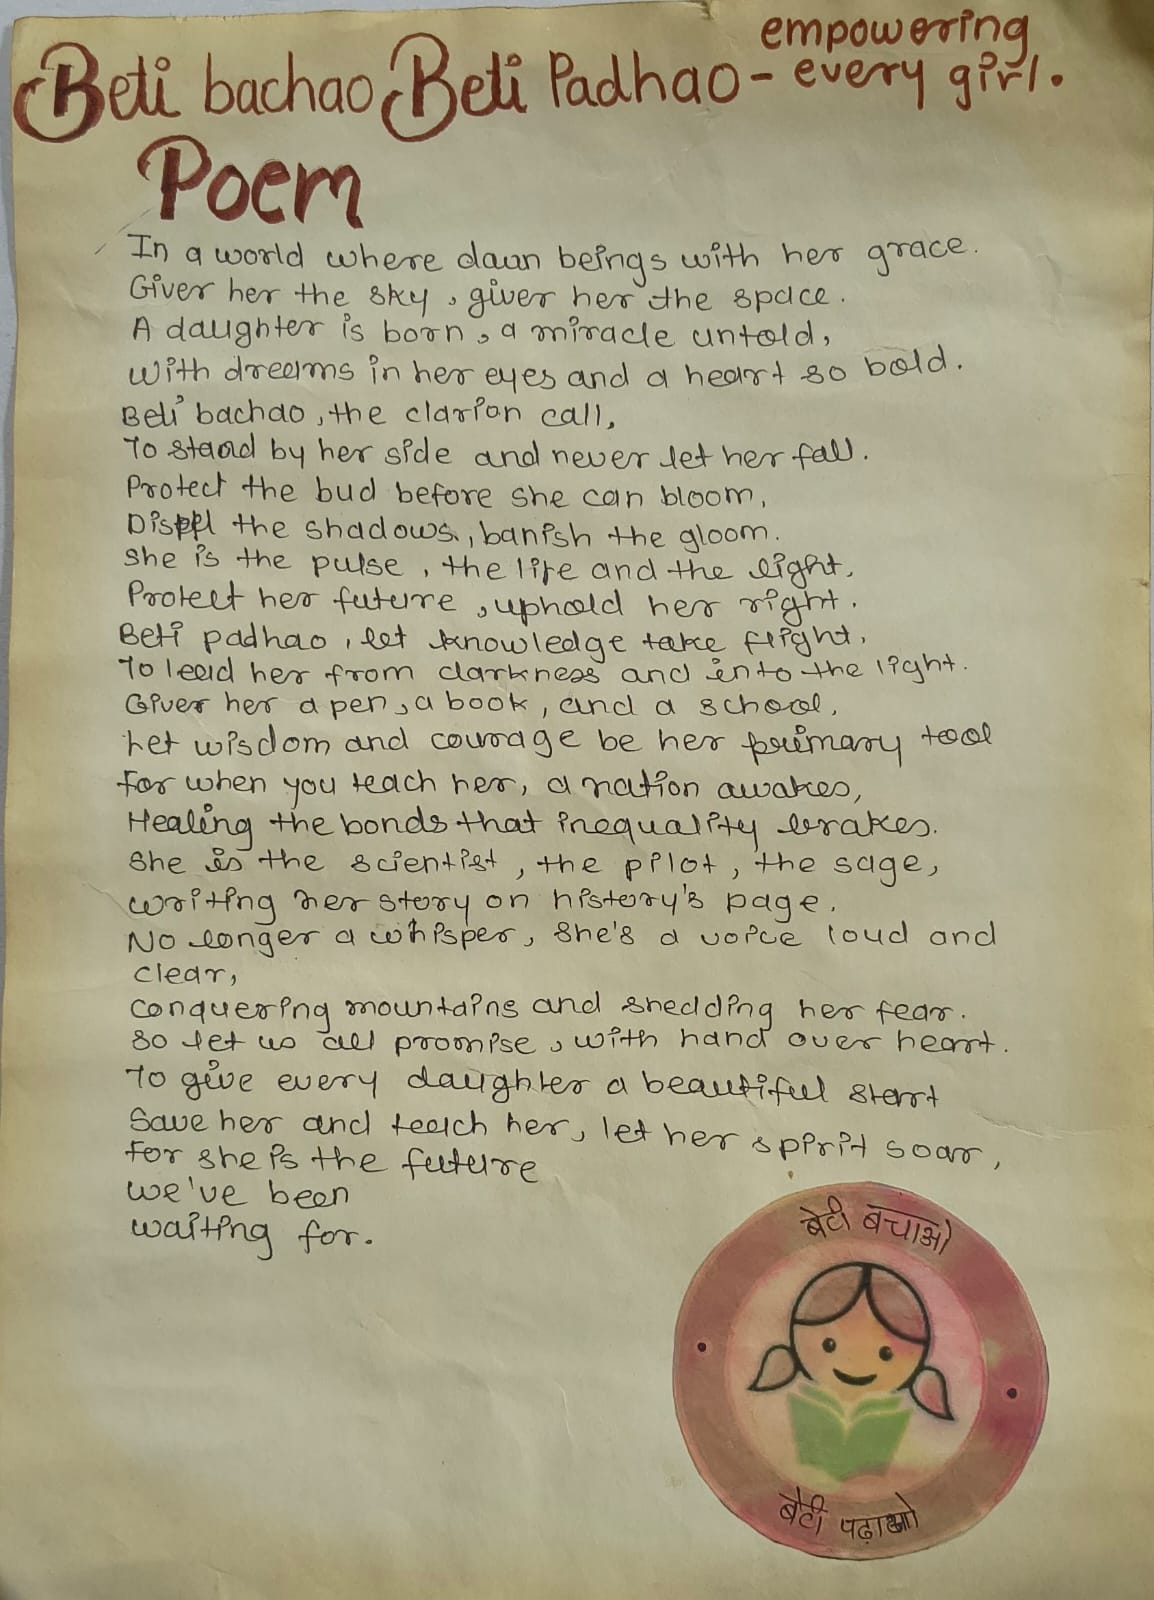 empowering
Beti bachao Beti Padhao - every girl.
Poem
In a world where daun beings with her grace.
Giver her the sky, giver her the space.
A daughter is born, a miracle untold,
with dreams in her eyes and a heart so bold.
Beti bachao, the clarion call,
To stand by her side and never let her fall.
Protect the bud before she can bloom,
the shadows, banish the gloom.
she is the pulse, the life and the light,
Protect her future, uphold her right.
Beti padhao, let knowledge take flight,
To lead her from darkness and into the light.
Giver her a pen, a book, and a school,
Let wisdom and courage be her primary tool
for when you teach her, a nation awakes,
Healing the bonds that inequality brakes.
She is the scientist, the pilot, the sage,
writing her story on history's page.
No longer a whisper, she's a voice loud and
clear,
conquering mountains and shedding her fear.
so let us all promise, with hand over heart.
To give every daughter a beautiful start
Save her and teach her, let her spirit soar,
for she is the future
we've been
waiting for.
बेटी बचाओ
बेटी पढ़ाओ